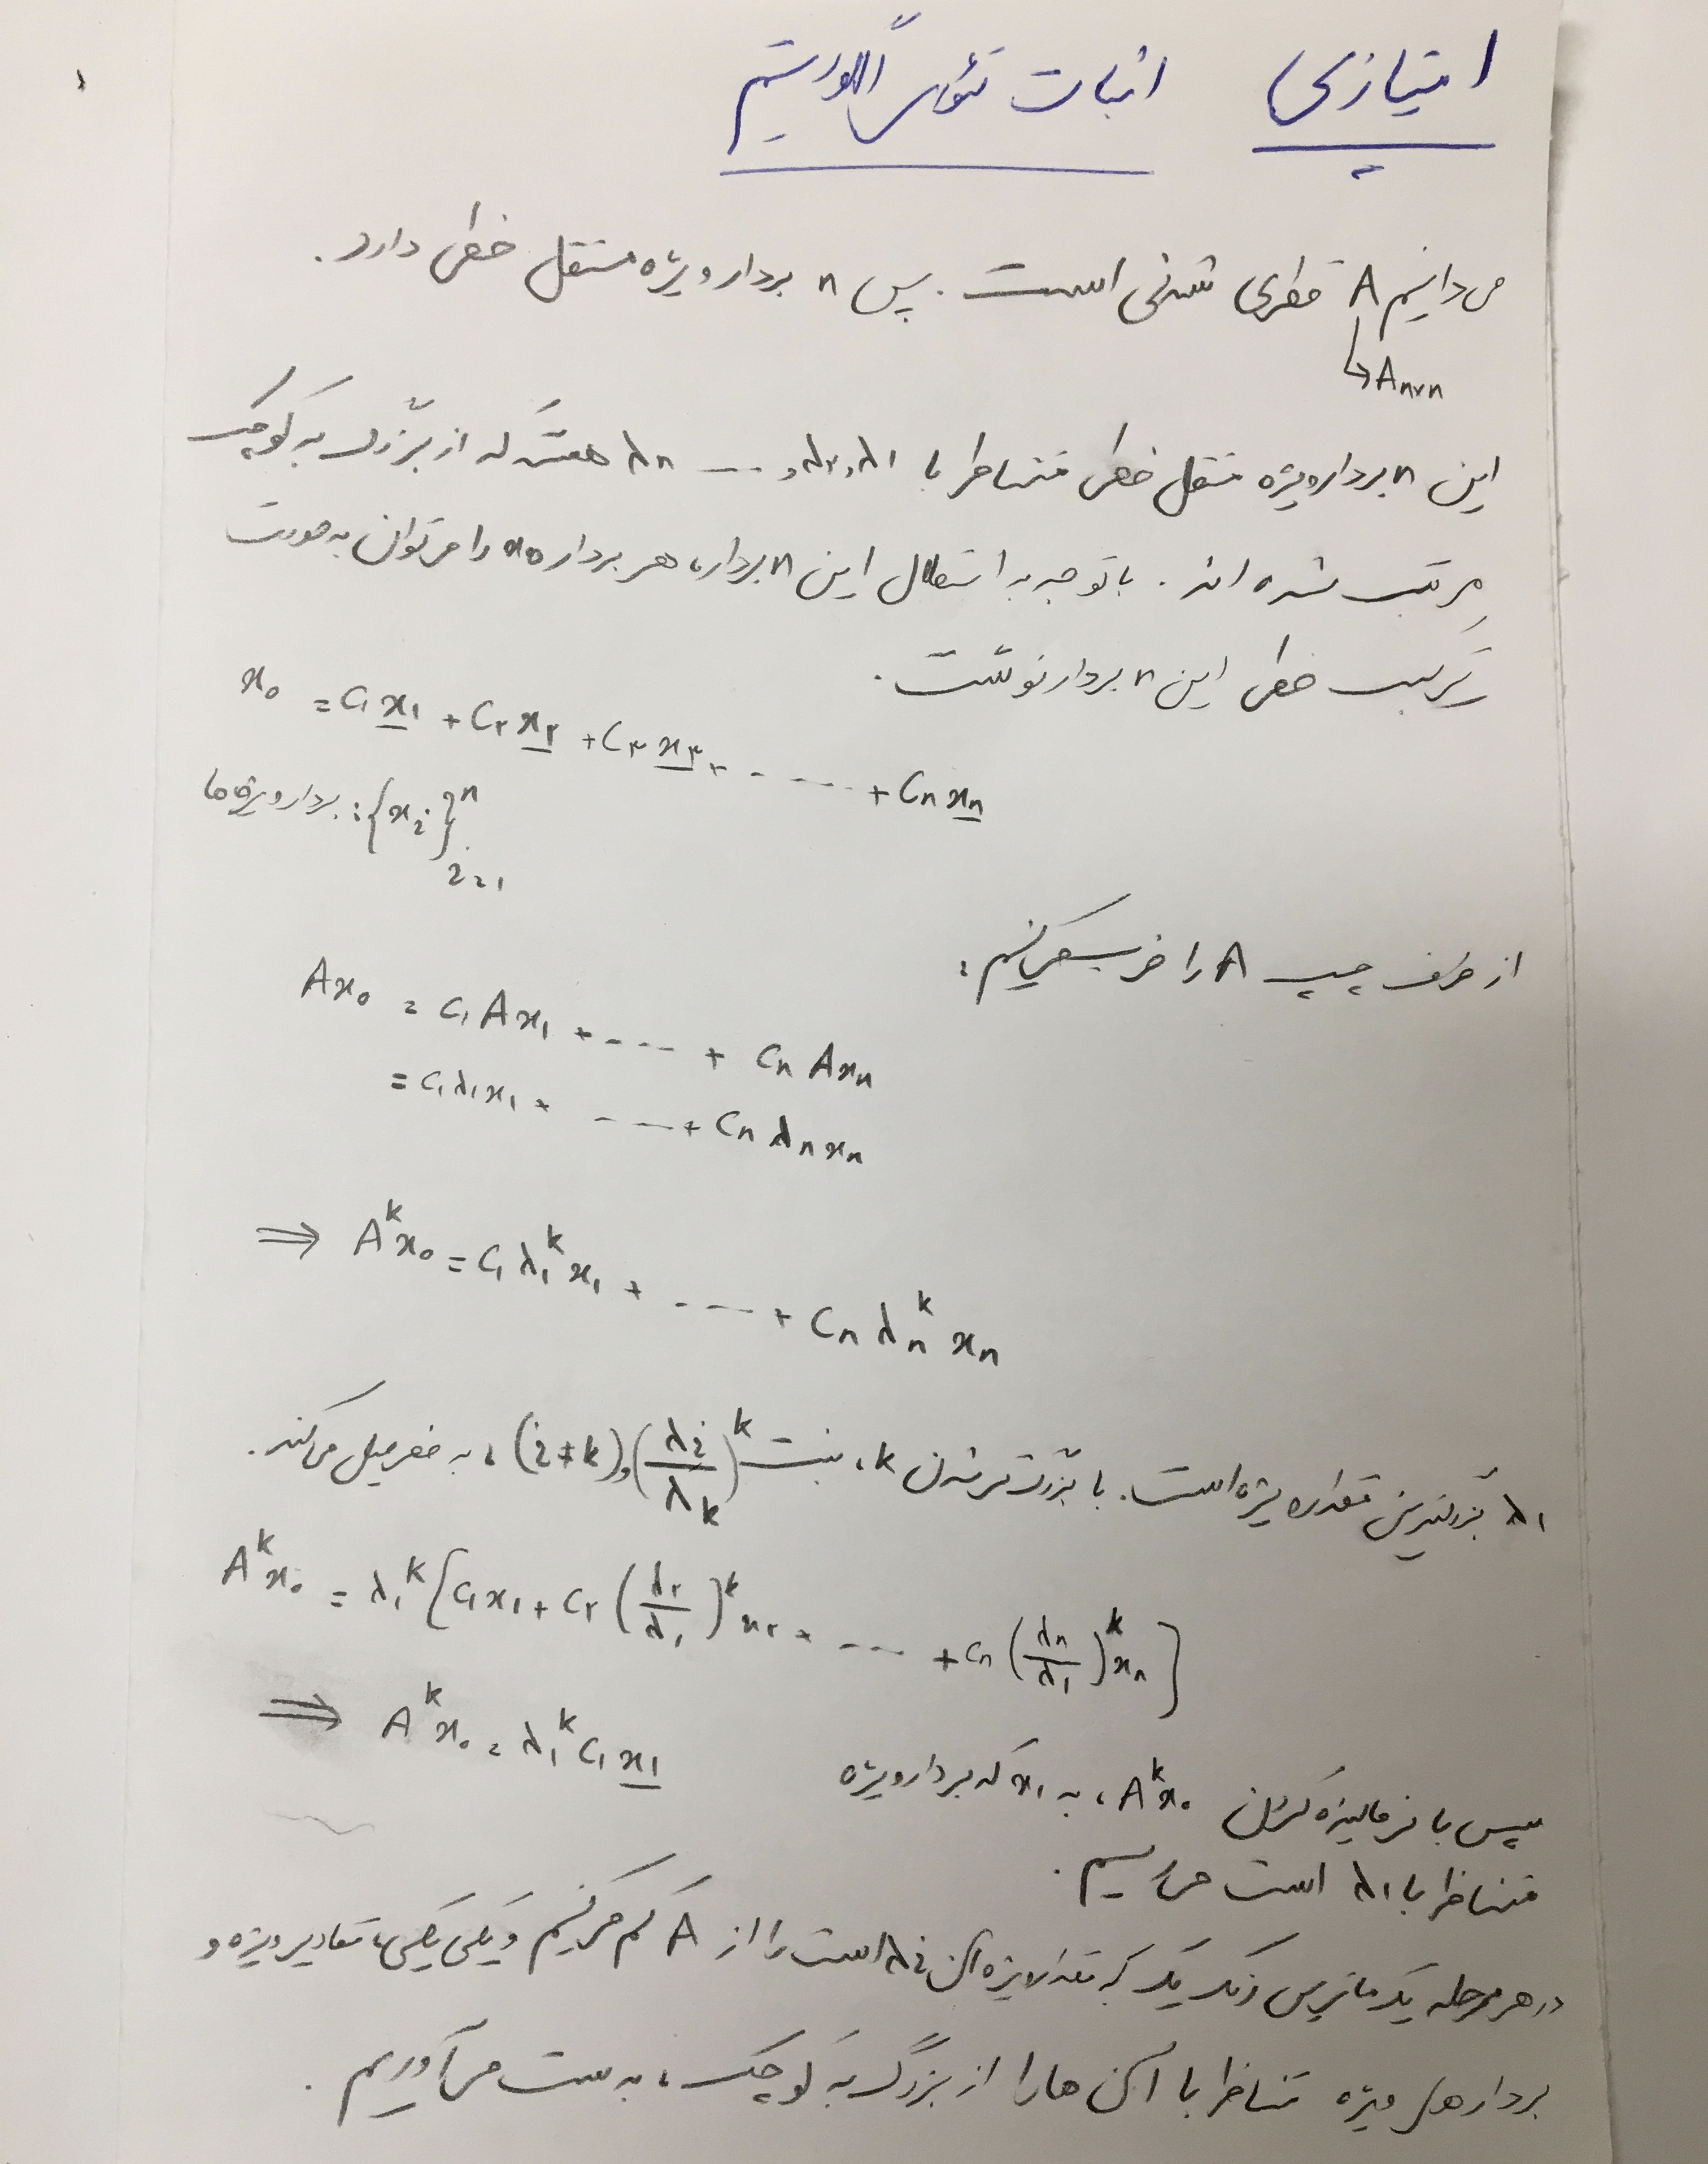 امتیازی اثبات تئوری الگوریتم
می‌دانیم A قطری شدنی است. پس n بردار ویژه مستقل خطی دارد.
↳ Aₙₓₙ
این n بردار ویژه مستقل خطی متناظر با λ₁, λ₂, ... λₙ هستند که از بزرگ به کوچک
مرتب شده اند. با توجه به استقلال این n بردار، هر بردار x₀ را می‌توان به صورت
ترکیب خطی این n بردار نوشت.
x₀ = C₁x₁ + C₂x₂ + C₃x₃ + ..... + Cₙxₙ
بردار ویژه‌ها : {xᵢ}ⁿᵢ₌₁
از طرف چپ A را ضرب می‌کنیم:
Ax₀ = C₁Ax₁ + ..... + CₙAxₙ
= C₁λ₁x₁ + ..... + Cₙλₙxₙ
⇒ Aᵏx₀ = C₁λ₁ᵏx₁ + ..... + Cₙλₙᵏxₙ
λ₁ بزرگترین مقدار ویژه است. با بزرگ‌تر شدن k، نسبت (λᵢ/λₖ)ᵏ و (i≠k)، به صفر میل می‌کند.
Aᵏx₀ = λ₁ᵏ[C₁x₁ + C₂(λ₂/λ₁)ᵏx₂ + .... + Cₙ(λₙ/λ₁)ᵏxₙ]
⇒ Aᵏx₀ = λ₁ᵏC₁x₁
سپس با نرمالیزه کردن Aᵏx₀، به x₁ که بردار ویژه
متناظر با λ₁ است می‌رسیم.
در هر مرحله یک ماتریس رنک یک که مقدار ویژه آن λᵢ است را از A کم می‌کنیم و یکی یکی، مقادیر ویژه و
بردارهای ویژه متناظر با آن ها را از بزرگ به کوچک، به دست می‌آوریم.